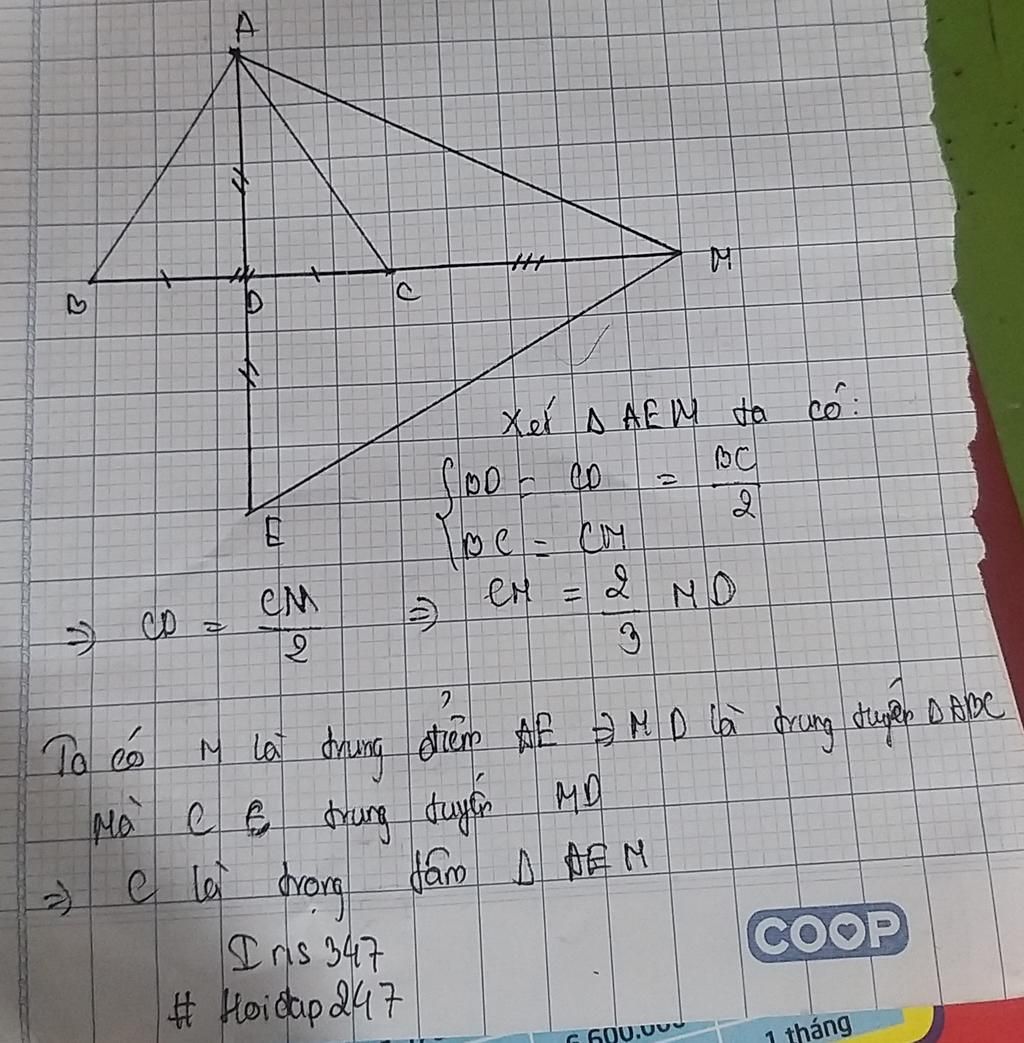 A
B
D
C
M
E
Xét Δ AEM ta có:
{ BD = CD = BC/2
BC = CM
⇒ CD = CM/2 ⇒ CM = 2/3 MD
Ta có M là trung điểm AE ⇒ MD là trung tuyến Δ ABC
Mà C ∈ trung tuyến MD
⇒ C là trọng tâm Δ AEM
Iris 347
# Hoidap247
COOP
6.600.000
1 tháng